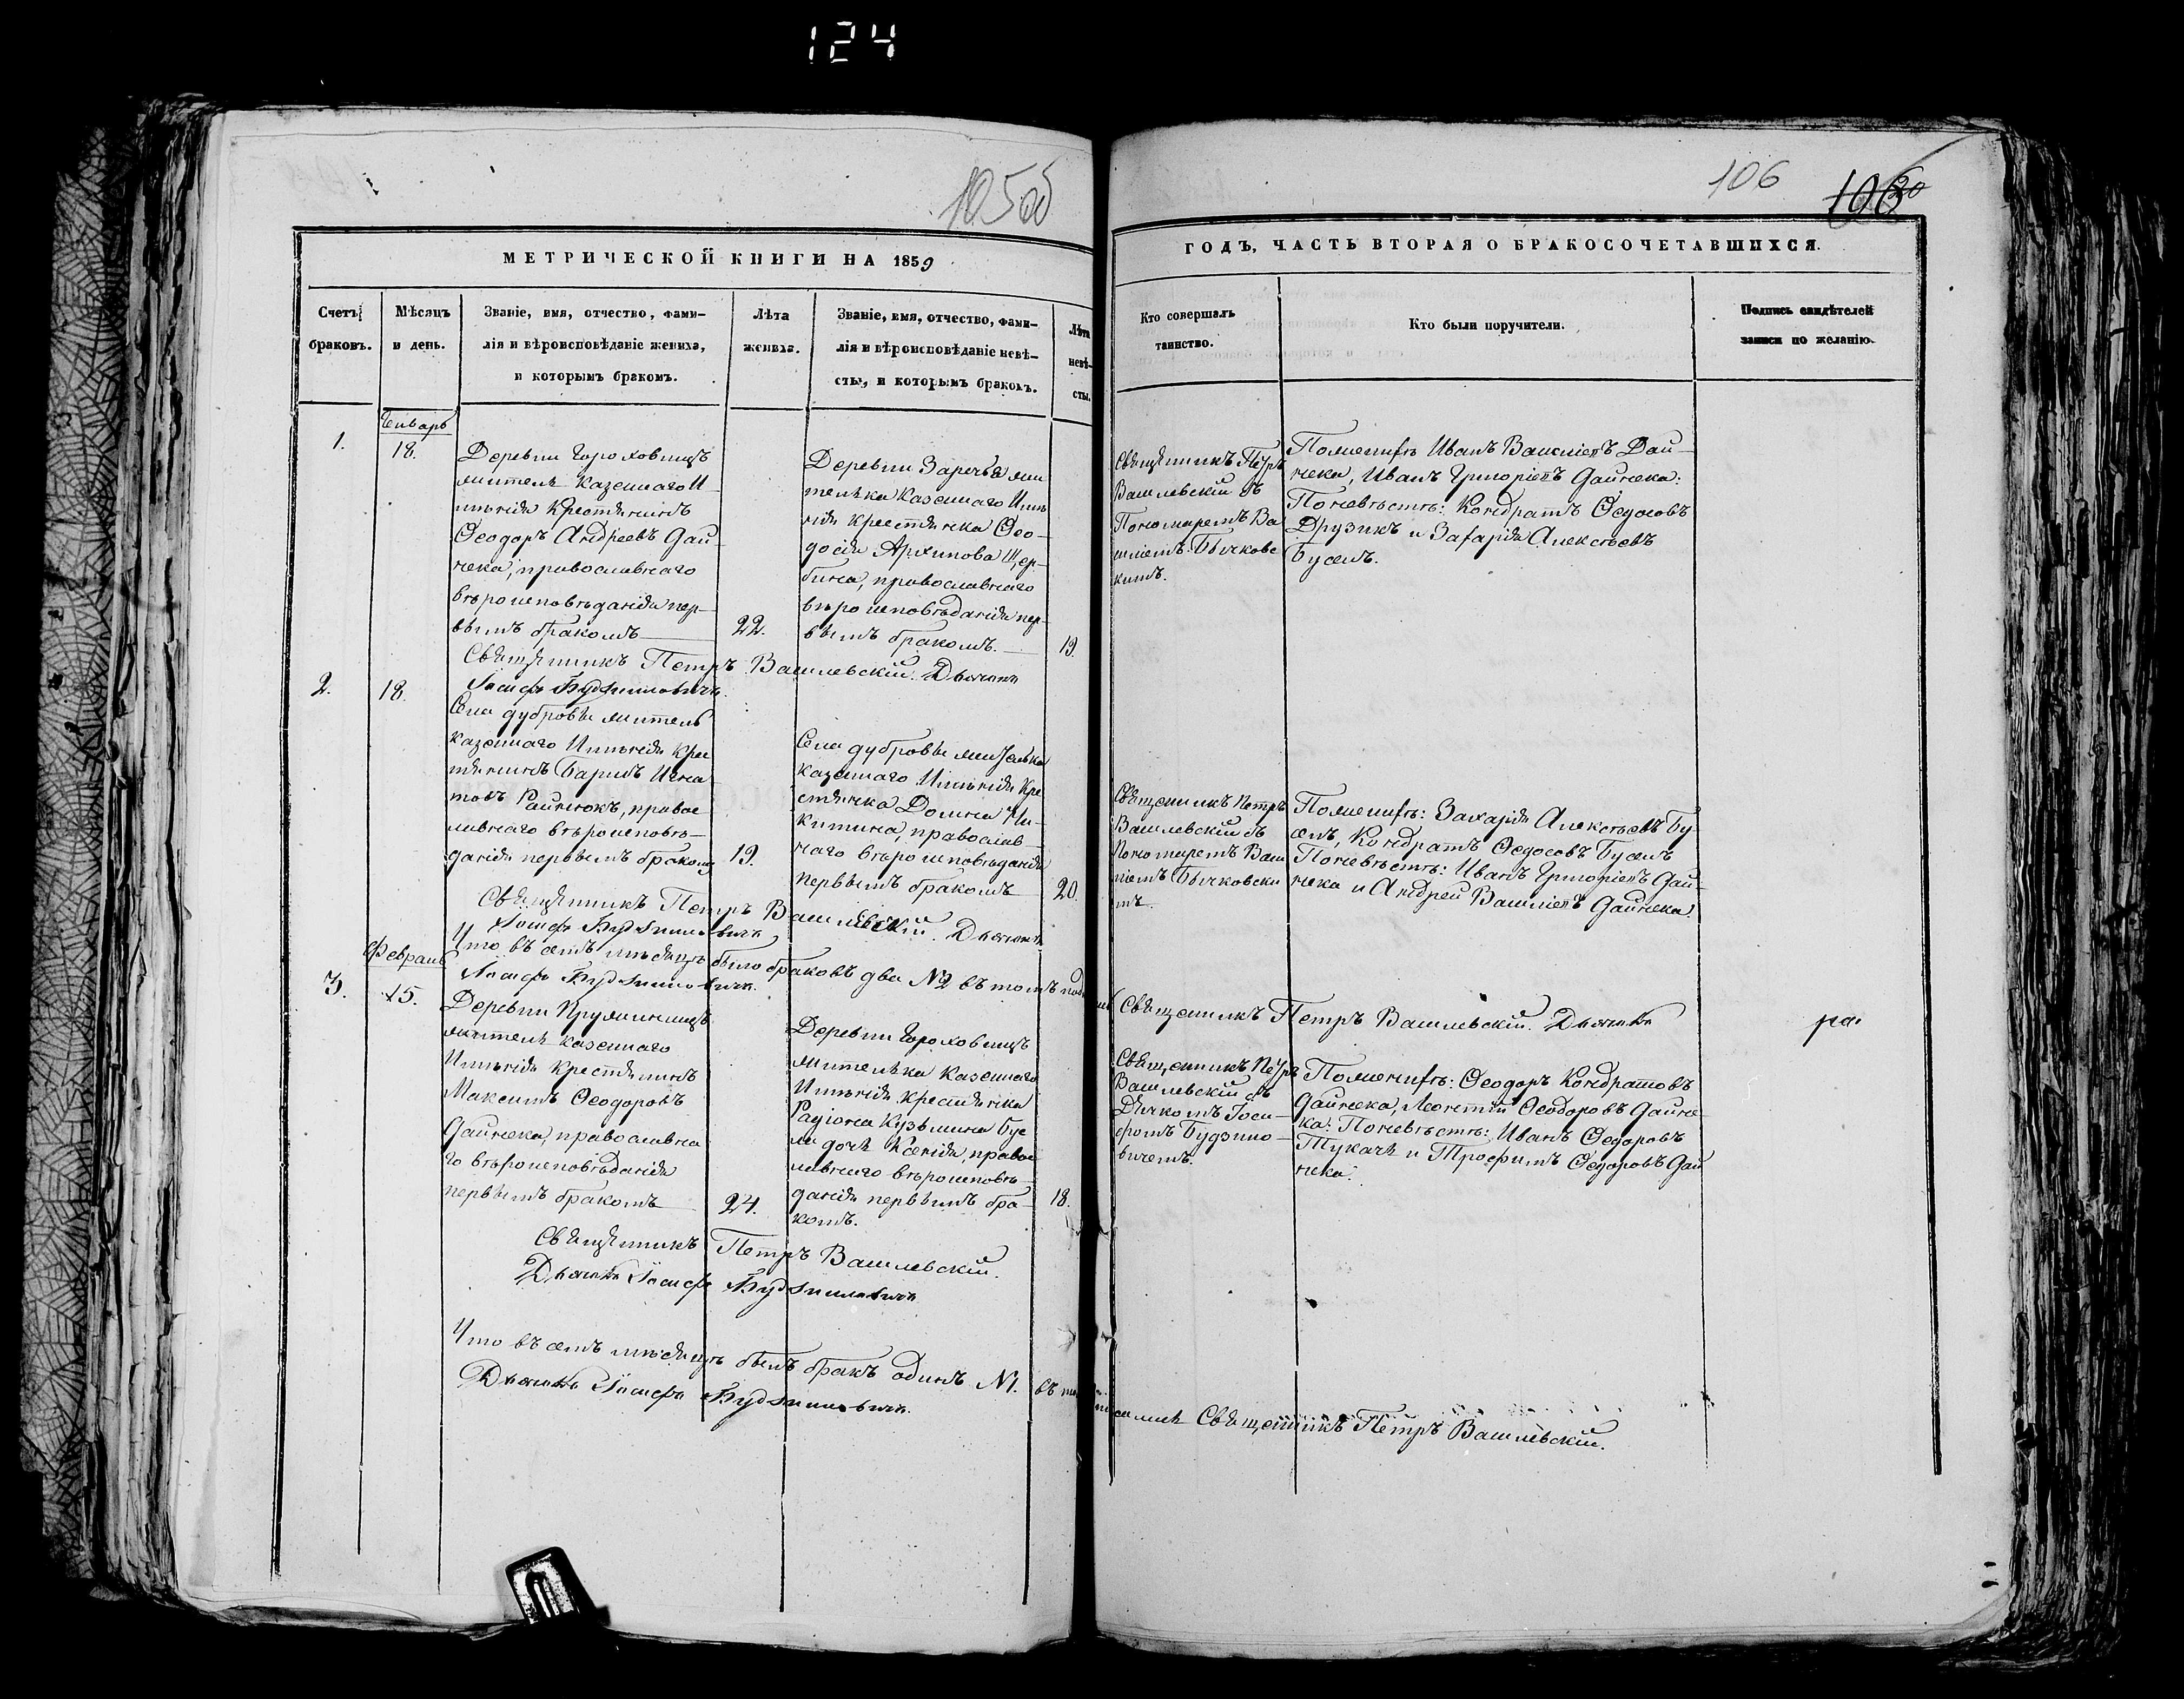 124
105об
106
МЕТРИЧЕСКОЙ КНИГИ НА 1859
ГОДЪ, ЧАСТЬ ВТОРАЯ О БРАКОСОЧЕТАВШИХСЯ.
Счетъ
браковъ.
Мѣсяцъ
и день.
Званіе, имя, отчество, фами-
лія и вѣроисповѣданіе жениха,
и которымъ бракомъ.
Лѣта
жениха.
Званіе, имя, отчество, фами-
лія и вѣроисповѣданіе невѣ-
сты, и которымъ бракомъ.
Лѣта
невѣ-
сты.
Кто совершалъ
таинство.
Кто были поручители.
Подпись свидѣтелей
записи по желанію.
1.
Январь
18.
Деревни Гороховищъ
житель казеннаго И-
мѣнія Крестьянинъ
Ѳеодоръ Андреевъ Дай-
нека, православнаго
вѣроисповѣданія пер-
вымъ бракомъ
22.
Деревни Заречья жи
телька Казеннаго Имѣ
нія крестьянка Ѳео-
досія Архипова Щер-
бина, православнаго
вѣроисповѣданія пер-
вымъ бракомъ.
19.
Священникъ Петръ
Василевскій съ
Пономаремъ Ва
силіемъ Бычковс
кимъ.
По женихѣ Иванъ Васил
іевъ Дай-
нека, Иванъ Григоріевъ Дайнека:
По невѣстѣ: Кондратъ Ѳедосовъ
Друзикъ и Захарія Алексѣевъ
Буселъ.
Священникъ Петръ Василевскій. Дьячекъ
Іосифъ Будзиловичъ.
2.
18.
Села Дубровы житель
казеннаго Имѣнія Крес
тьянинъ Игна
товъ православ
наго вѣроисповѣ-
данія первымъ бракомъ
19.
Села Дубровы жителька
казеннаго Имѣнія Кре
стьянка Ни-
китина, православ-
наго вѣроисповѣданія
первымъ бракомъ
20.
Священникъ Петръ
Василевскій съ
Пономаремъ Васи
ліемъ Бычковски
мъ.
По женихѣ: Захарія Алексѣевъ Бу
селъ, Кондратъ Ѳедосовъ Буселъ
По невѣстѣ: Иванъ Григоріевъ Дай-
нека и Андрей Василіевъ Дайнека.
Священникъ Петръ Василевскій. Дьячекъ
Іосифъ Будзиловичъ
Что въ семъ мѣсяцѣ было браковъ два №2 въ томъ
Священникъ Петръ Василевскій. Дьячекъ
Іосифъ Будзиловичъ.
Февраль
3.
15.
Деревни
житель казеннаго
Имѣнія Крестьянинъ
Максимъ Ѳеодоровъ
Дайнека, православна
го вѣроисповѣданія
первымъ бракомъ
24.
Деревни Гороховищъ
жителька казеннаго
Имѣнія крестьянка
Радіона Кузьмина Бус
ла дочь Ксенія, правос
лавнаго вѣроисповѣ-
данія первымъ бра-
комъ.
18.
Священникъ Петръ
Василевскій съ
Дьячкомъ Іоси-
фомъ Будзило-
вичемъ.
По женихѣ: Ѳеодоръ Кондратовъ
Дайнека, Леонтій Ѳеодоровъ Дайне
ка: По невѣстѣ: Иванъ Ѳедоровъ
Тукачъ и Трофимъ Ѳедоровъ Дай
нека.
Священникъ Петръ Василевскій.
Дьячекъ Іосифъ Будзиловичъ
Что въ семъ мѣсяцѣ былъ бракъ одинъ №1. въ томъ
Священникъ Петръ Василевскій.
Дьячекъ Іосифъ Будзиловичъ.